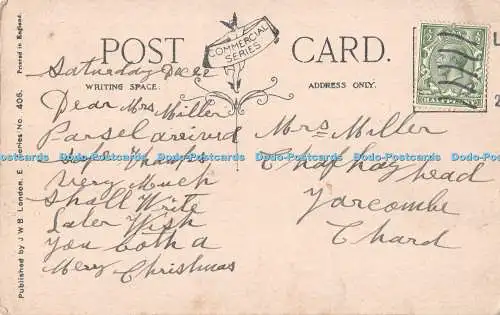 POST CARD.
COMMERCIAL
SERIES
WRITING SPACE.
ADDRESS ONLY.
HALFPENNY
Saturday Dec 22
Dear Mrs Miller
Parsel areived
safe Thanks
very Much
shall Write
Later Wish
you both a
Mery Christmas
Mrs Miller
head
Yarcombe
Chard
Published by J W B London, E Series No. 406. Printed in England.
Dodo-Postcards Dodo-Postcards Dodo-Postcards Dodo-Postcards Dodo-Postcards Dodo-Postcards